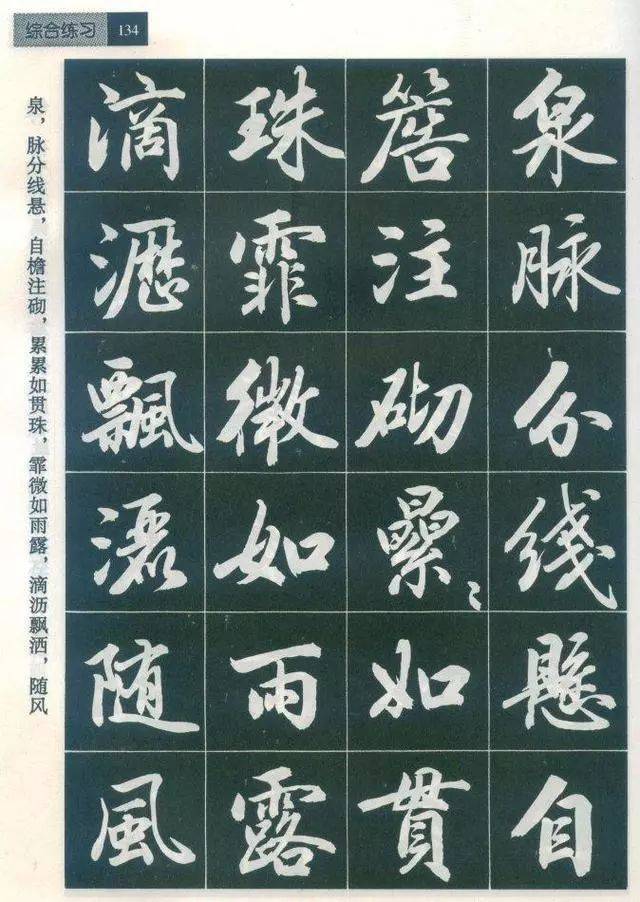 综合练习 134
泉脉分线悬自
簷注砌纍〻如貫
珠霏微如雨露
滴瀝飄灑随風
泉，脉分线悬，自檐注砌，累累如贯珠，霏微如雨露，滴沥飘洒，随风